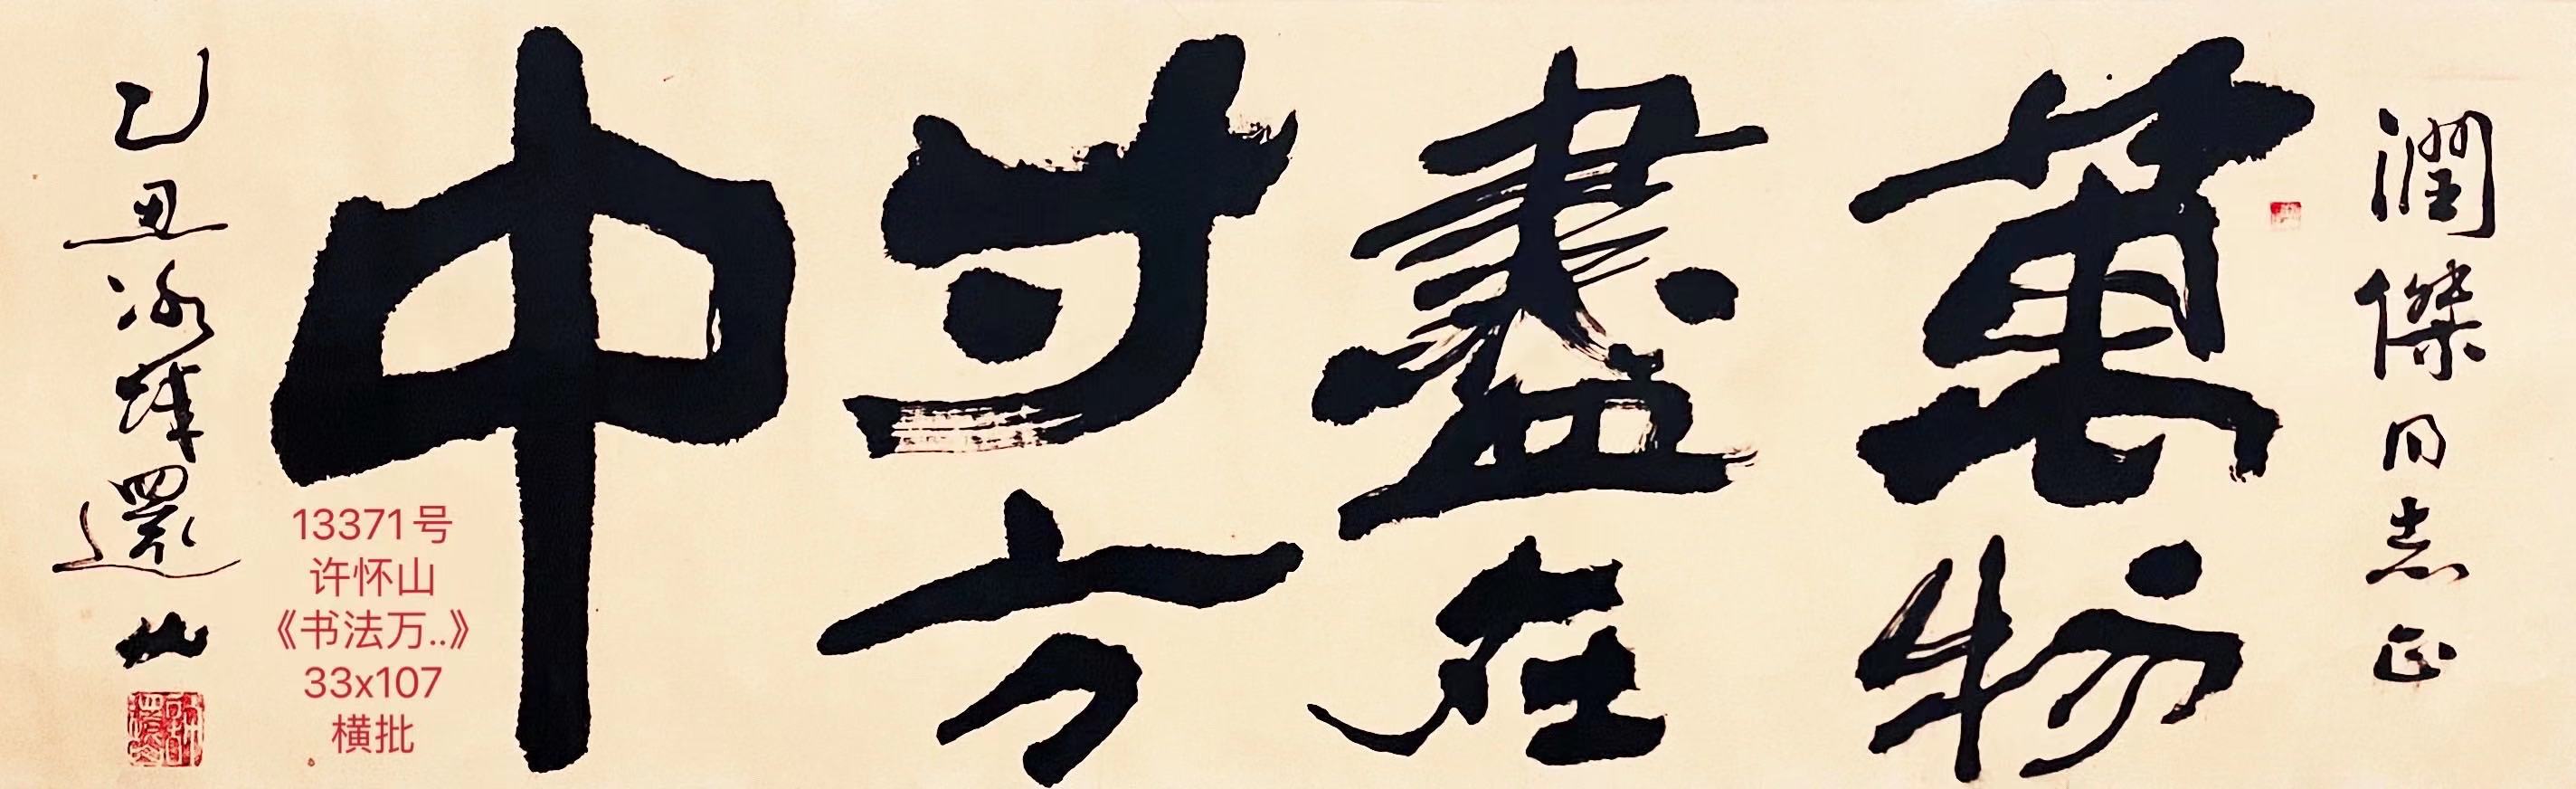 潤傑同志正
萬物
盡在
寸方
中
乙丑冰還山
13371号
许怀山
《书法万..》
33x107
横批